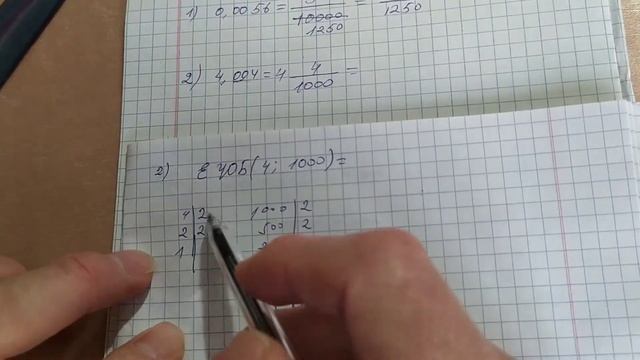 1) 0,0056 = 10000 =
1250 1250
2) 4,004 = 4 4/1000 =
2) ЕҮОБ(4; 1000) =
4 | 2 1000 | 2
2 | 2 500 | 2
1 |